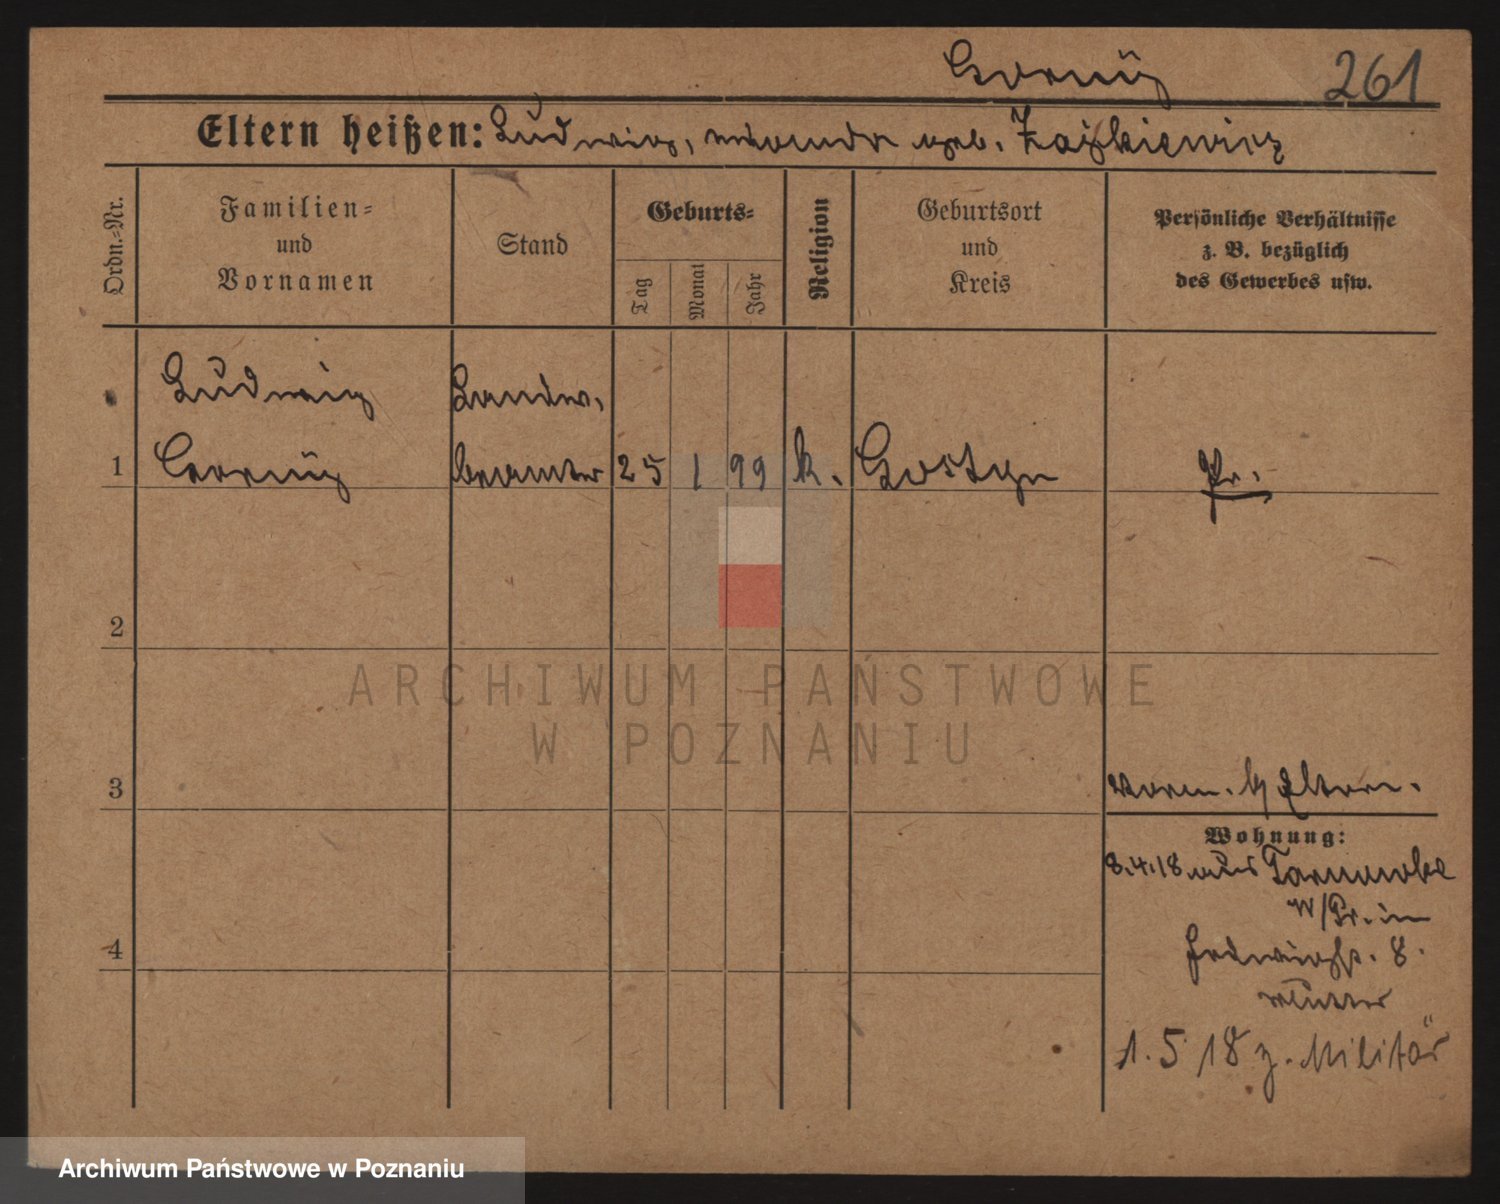 261
Eltern heißen: Ludwig, geb. Zajkiewicz
Ordn.-Nr.
Familien-
und
Vornamen
Stand
Geburts-
Tag
Monat
Jahr
Religion
Geburtsort
und
Kreis
Persönliche Verhältnisse
z. B. bezüglich
des Gewerbes usw.
Ludwig Landw.
1 beamter 25 1 99 k. Gostyn Pr.
2
3
Eltern.
Wohnung:
8.4.18 aus
W/Pr. in
4
8.
Mutter
1. 5 18 z. Militär
ARCHIWUM PAŃSTWOWE
W POZNANIU
Archiwum Państwowe w Poznaniu